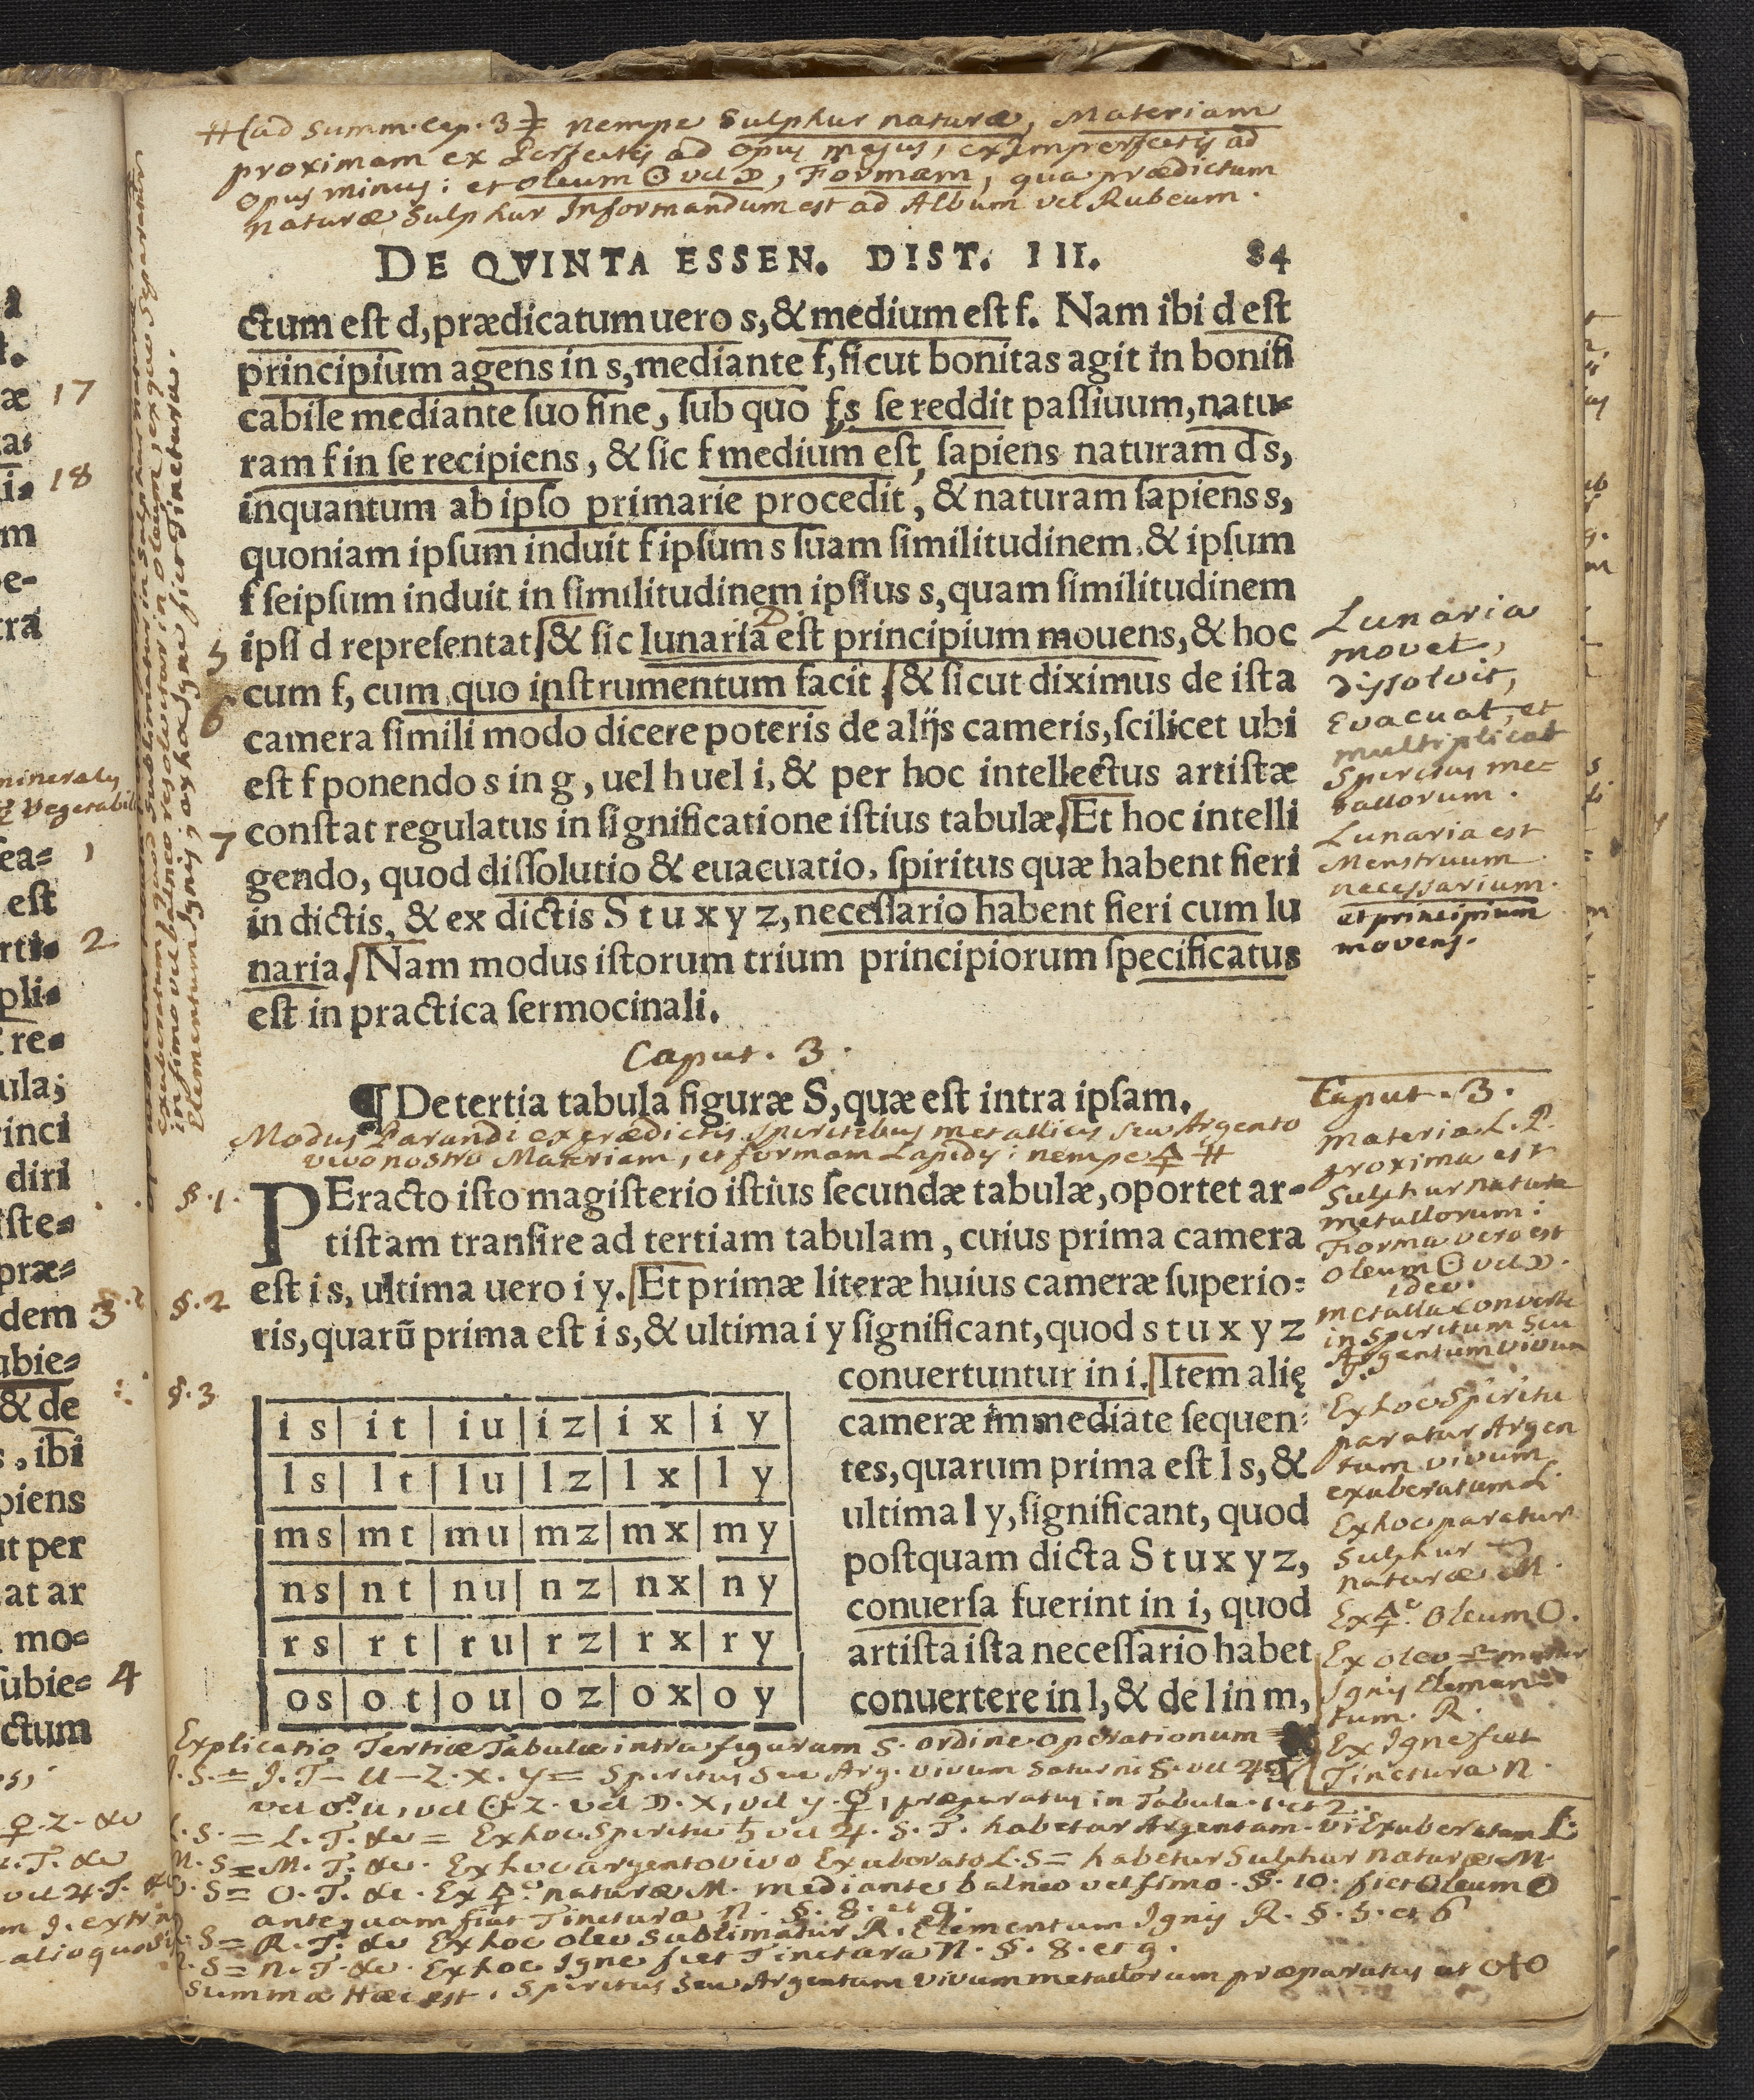 #(ad summ. cap. 3 nempe Sulphur naturæ, Materiam
proximam ex Perfectis ad opus majus, ex Imperfectis ad
Opus Minus; et oleum ☉ vel ☽, Formam, qua prædictum
naturæ Sulphur Informandum est ad Album vel Rubeum.
DE QVINTA ESSEN. DIST. III. 84
ctum eſt d, prædicatum uero s, & medium eſt f. Nam ibi d eſt
principium agens in s, mediante f, ſicut bonitas agit in bonifi
cabile mediante ſuo fine, ſub quo f, s ſe reddit paſſiuum, natu-
ram f in ſe recipiens, & ſic f medium eſt, ſapiens naturam d s,
inquantum ab ipſo primarie procedit, & naturam ſapiens s,
quoniam ipſum induit f ipſum s ſuam ſimilitudinem, & ipſum
f ſeipſum induit in ſimilitudinem ipſius s, quam ſimilitudinem
5 ipſi d repreſentat & ſic lunaria eſt principium mouens, & hoc
6 cum f, cum quo inſtrumentum facit, & ſicut diximus de iſta
camera ſimili modo dicere poteris de alijs cameris, ſcilicet ubi
eſt f ponendo s in g, uel h uel i, & per hoc intellectus artiſtæ
7 conſtat regulatus in ſignificatione iſtius tabulæ. Et hoc intelli
gendo, quod diſſolutio & euacuatio, ſpiritus quæ habent fieri
in dictis, & ex dictis S t u x y z, neceſſario habent fieri cum lu
naria. Nam modus iſtorum trium principiorum ſpecificatus
eſt in practica ſermocinali.
Lunaria
movet,
dissolvit,
Evacuat, et
multiplicat
Spiritus me-
tallorum.
Lunaria est
Menstruum
necessarium.
et principium
movens.
Caput. 3.
¶ De tertia tabula figuræ S, quæ eſt intra ipſam.
Modus Parandi ex prædictis Spiritibus metallicis seu Argento
vivo nostro Materiam, et formam Lapidis; nempe 🜍 #
§.1. PEracto iſto magiſterio iſtius ſecundæ tabulæ, oportet ar-
tiſtam tranſire ad tertiam tabulam, cuius prima camera
§.2 eſt i s, ultima uero i y. Et primæ literæ huius cameræ ſuperio-
ris, quarũ prima eſt i s, & ultima i y ſignificant, quod s t u x y z
§.3 conuertuntur in i. Item alię
cameræ immediate ſequen-
tes, quarum prima eſt l s, &
ultima l y, ſignificant, quod
poſtquam dicta S t u x y z,
conuerſa fuerint in i, quod
artiſta iſta neceſſario habet
conuertere in l, & de l in m,
i s | i t | i u | i z | i x | i y
l s | l t | l u | l z | l x | l y
m s | m t | m u | m z | m x | m y
n s | n t | n u | n z | n x | n y
r s | r t | r u | r z | r x | r y
o s | o t | o u | o z | o x | o y
Caput. 3.
Materia L. P.
proxima est
Sulphur naturæ
metallorum;
Forma vero est
Oleum ☉ vel ☽.
ideo
metalla converte
in Spiritum seu
Argentum vivum
J.
Ex hoc Spiritu
paratur Argen
tum vivum
exuberatum L.
Ex hoc paratur
Sulphur
naturæ M.
Ex 🜍 Oleum O.
Ex oleo
Ignis Elemen-
tum. R.
Ex Igne fiet
Tinctura N.
Explicatio Tertiæ Tabulæ intra figuram S. ordine operationum
J.S. = J.T – U – Z. X. Y = Spiritus seu Arg. vivum Saturni S. vel ♃
vel ♂ U, vel ☉ Z. vel ☽. X, vel Y. ♀, præparatus in Tabula 1 et 2.
L.S. = L.T. &c = Ex hoc Spiritu ♄ vel ♃. S. T. habetur Argentum vi: Exuberatum L.
M.S = M.T. &c. Ex hoc argento vivo Exuberato L.S = habetur Sulphur naturæ M.
O.S = O.T. &c. Ex 🜍 naturæ M. mediante balneo vel fimo. §. 10. fiet Oleum O
antequam fiat Tinctura N. §. 8. et 9.
R.S = R.T. &c Ex hoc oleo Sublimatur R. Elementum Ignis R. §. 5. et 6
N.S = N.T. &c. Ex hoc Igne fiet Tinctura N. §. 8. et 9.
Summa Hæc est. Spiritus seu Argentum vivum metallorum præparatus ut
17
18
mineralis
Vegetabil
1
eſt
2
3
dem
& de
, ibi
piens
ut per
at ar
mo-
ſubie- 4
ctum